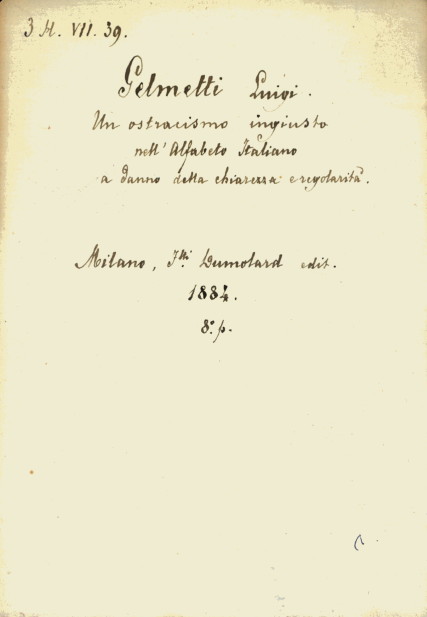 3 H. VII. 39.
Gelmetti Luigi.
Un ostracismo ingiusto
nell' Alfabeto Italiano
a danno della chiarezza e regolarità.
Milano, F.lli Dumolard edit.
1884.
8.° p.